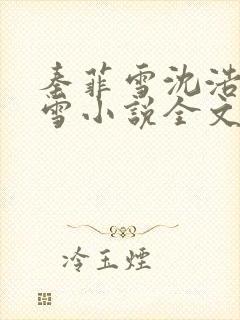 秦菲雪沈浩
雪小说全文
冷玉煙